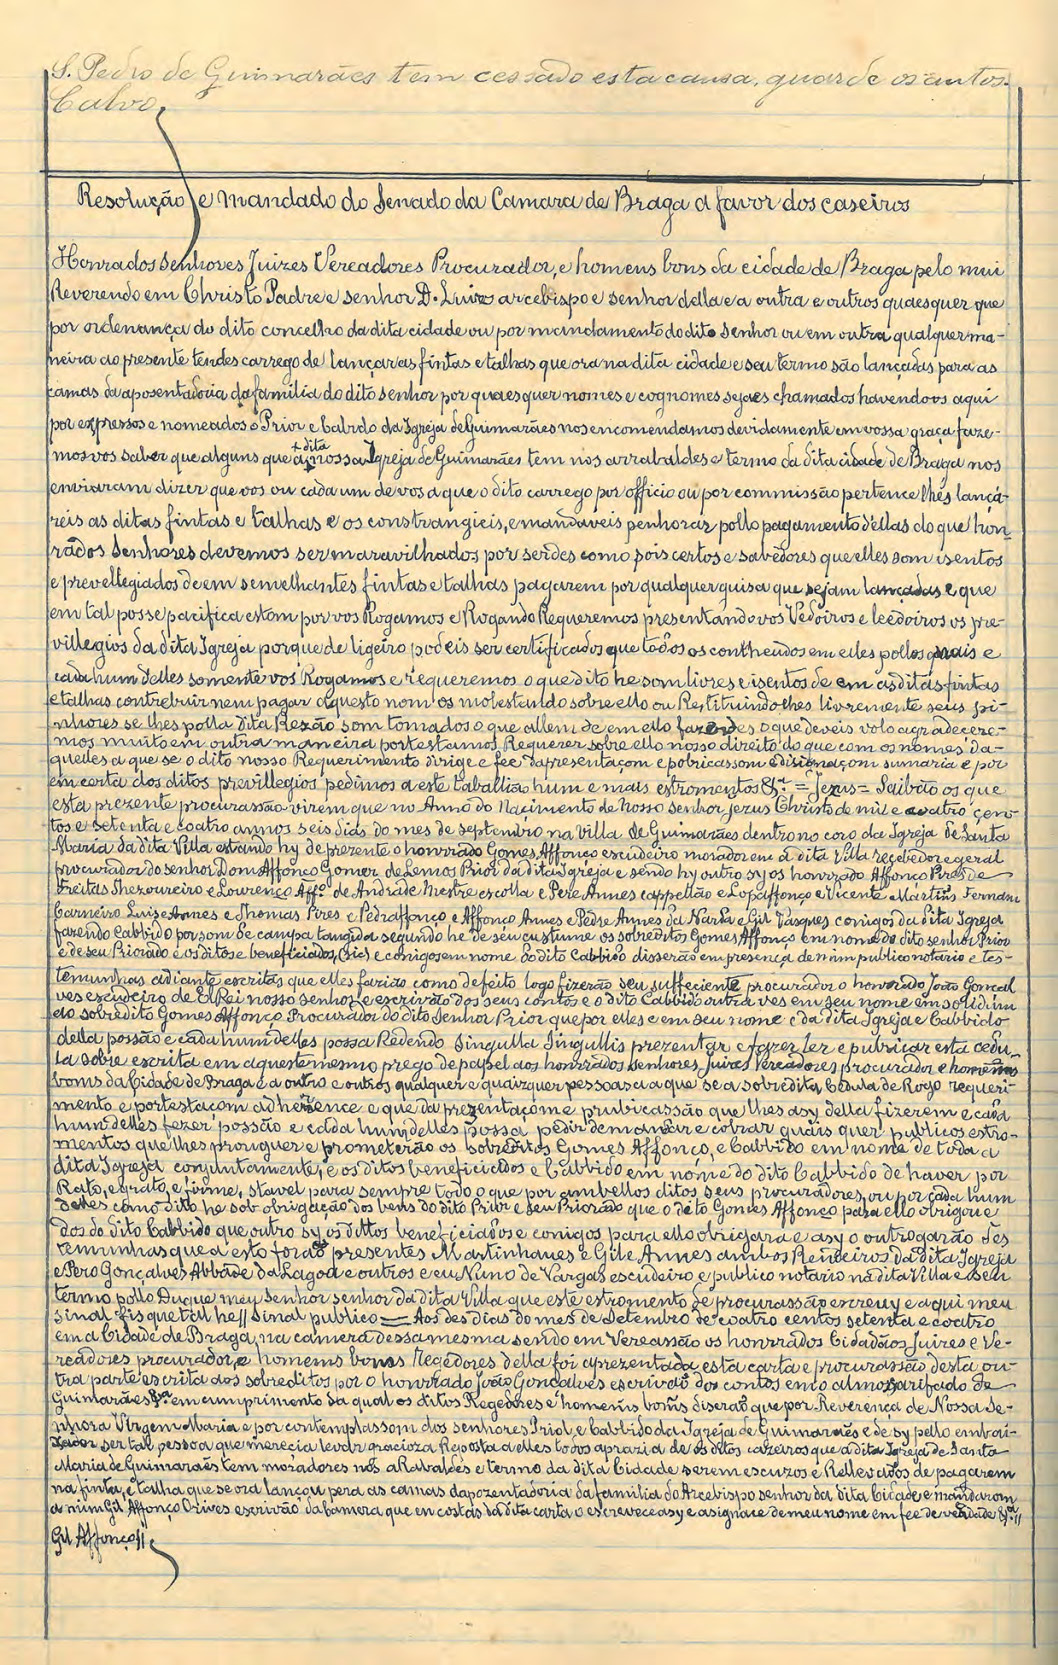 S. Pedro de Guimarães tem cessado esta causa, guarde os autos.
Calvo
Resolução e mandado do Senado da Camara de Braga a favor dos caseiros
Honrados Senhores Juizes Vereadores Procurador, e homens bons da cidade de Braga pelo mui
Reverendo em Christo Padre e senhor D. Luiz arcebispo e senhor della e a outra e outros quaesquer que
por ordenança do dito concelho da dita cidade ou por mandamento do dito senhor ou em outra qualquer ma-
neira ao presente tendes carrego de lançar as fintas e talhas que ora na dita cidade e seu termo são lançadas para as
camas da aposentadoria da familia do dito senhor por quaesquer nomes e cognomes sejaes chamados havendovos aqui
por expressos e nomeados o Prior e Cabido da Igreja de Guimarães nos encomendamos devidamente em vossa graça faze-
mosvos saber que alguns que a dita nossa Igreja de Guimarães tem nos arrabaldes e termo da dita cidade de Braga nos
enviaram dizer que vos ou cada um de vos a que o dito carrego por officio ou por commissão pertence lhes lançá-
reis as ditas fintas e talhas e os constrangieis, e mandaveis penhorar pollo pagamento d'ellas do que hon-
rados Senhores devemos ser maravilhados por serdes como sois certos e savedores que elles som isentos
e prevellegiados de em semelhantes fintas e talhas pagarem por qualquer guisa que sejam lançadas e que
em tal posse pacifica estam por vos Rogamos e Rogando Requeremos presentandovos Vedoiros e leedoiros os pre-
villegios da dita Igreja porque de ligeiro podeis ser certificados que todos os contheudos em elles pollos quais e
cada hum delles somente vos Rogamos e requeremos o que dito he som livres e isentos de em as ditas fintas
e talhas contrebuir nem pagar aquesto nom os molestando sobre ello ou Restituindolhes livremente seus pi-
nhores se lhes polla dita Rezão som tomados o que allem de em ello fazerdes o que deveis volo agradecere-
mos muito em outra maneira portestamos Requerer sobre ello nosso direito do que com os nomes da-
quelles a que se o dito nosso Requerimento dirige e fee dapresentaçom e pobricassom e disignaçom sumaria e por
em certa dos ditos previllegios pedimos a este taballião hum e mais estromentos &ª. = Jezus = Saibão os que
esta prezente procurassão virem que no Anno do Nascimento de Nosso senhor jezus Christo de mil e coatro çen-
tos e setenta e coatro annos seis dias do mes de septembro na villa de Guimarães dentro no coro da Igreja de Santa
Maria da dita Villa estando hy de prezente o honrrado Gomes Affonço escudeiro morador em a dita Villa recebedor e geral
procurador do senhor Dom Affonço Gomez de Lemos Prior da dita Igreja e sendo hy outro sy os honrrado Affonço Pires de
Freitas Thezoureiro e Lourenço Affº. de Andrade Mestre escolla e Pere Annes cappellão e Lopaffonço e Vicente Martins Fernam
Carneiro Luis Annes e Thomas Pires e Pedraffonço e Affonço Annes e Pedre Annes da Narba e Gil Vasques conigos da dita Igreja
fazendo Cabbido por som de campa tangida segundo he de seu custume os sobreditos Gomes Affonço em nome do dito senhor Prior
e de seu Priorado e os ditos e beneficiados, (sic) e conigos em nome do dito Cabbido disserão em presença de mim publico notario e tes-
temunhas adiante escritas que elles farião como defeito logo fizerão seu suffeciente procurador o honrado João Goncal
ves escudeiro de ElRei nosso senhor e escrivão dos seus contos e o dito Cabbido outra ves em seu nome em solidum
ao sobredito Gomes Affonço Procurador do dito Senhor Prior que por elles e em seu nome e da dita Igreja e Cabbido
della possão e cada hum delles possa Redendo Singulla Singullis prezentar e fazer ler e pubricar esta cedu-
la sobre escrita em aqueste mesmo prego de papel aos honrrados Senhores, Juizes Vereadores procurador e homens
bons da Cidade de Braga e a outro e outros qualquer e quaizquer pessoas a a que se a sobredita Cedula de Rogo requeri-
mento e portestaçom adherence e que da prezentaçom e prubicassão que lhes asy della fizerem e cada
hum delles fezer possão e cada hum delles possa pedir demandar e cobrar quais quer publicos estro-
mentos que lhes prouguer e prometerão os sobreditos Gomes Affonço, e Cabbido em nome de toda a
dita Igreja conjuntamente, e os ditos beneficiados e Cabbido em nome do dito Cabbido de haver por
Rato, e grato, e firme, stavel para sempre todo o que por ambellos ditos seus procuradores, ou por cada hum
delles como dito he sob obrigação dos bens do dito Prior e seu Priorado que o dito Gomes Affonço para ello obrigou e
dos do dito Cabbido que outro sy os dittos beneficiados e conigos para ello obrigara e asy o outrogarão tes
temunhas que a esto forão presentes Martinhanes e Gil e Annes ambos Rendeiros da dita Igreja
e Pero Gonçalves Abbade da Lagoa e outros e eu Nuno de Vargas escudeiro e publico notario na dita Villa e seu
termo pollo Duque meu Senhor senhor da dita Villa que este estromento de procurassão escreuy e aqui meu
sinal fis que tal he // Sinal publico = Aos des dias do mes de Setembro de coatro centos setenta e coatro
em a Cidade de Braga, na camera dessa mesma sendo em Vereassão os honrrados Cidadãos, Juizes e Ve-
readores procurador, e homens bons Regedores della foi aprezentada esta carta e procurassão desta ou-
tra parte escrita aos sobreditos por o honrrado João Gonçalves escrivão dos contos em o almoxarifado de
Guimarães &ª em cumprimento da qual os ditos Regedores e homens bons diserão que por Reverença de Nossa Se-
nhora Virgem Maria e por contemplassom dos senhores Prior, e Cabbido da Igreja de Guimarães e de sy pello embai-
xador ser tal pessoa que merecia levar gracioza Reposta a elles todos aprazia de os ditos cazeiros que a dita Igreja de Santa
Maria de Guimarães tem moradores nos aRabaldes e termo da dita Cidade serem escuzos e Rellevados de pagarem
na finta, e talha que se ora lançou pera as camas dapozentadoria da familia do Arcebispo senhor da dita Cidade e mandarom
a mim Gil Affonço Orives escrivão da Camera que en costas da dita carta o escrevece asy e asignace de meu nome em fee de verdade &ª. //
Gil Affonço //